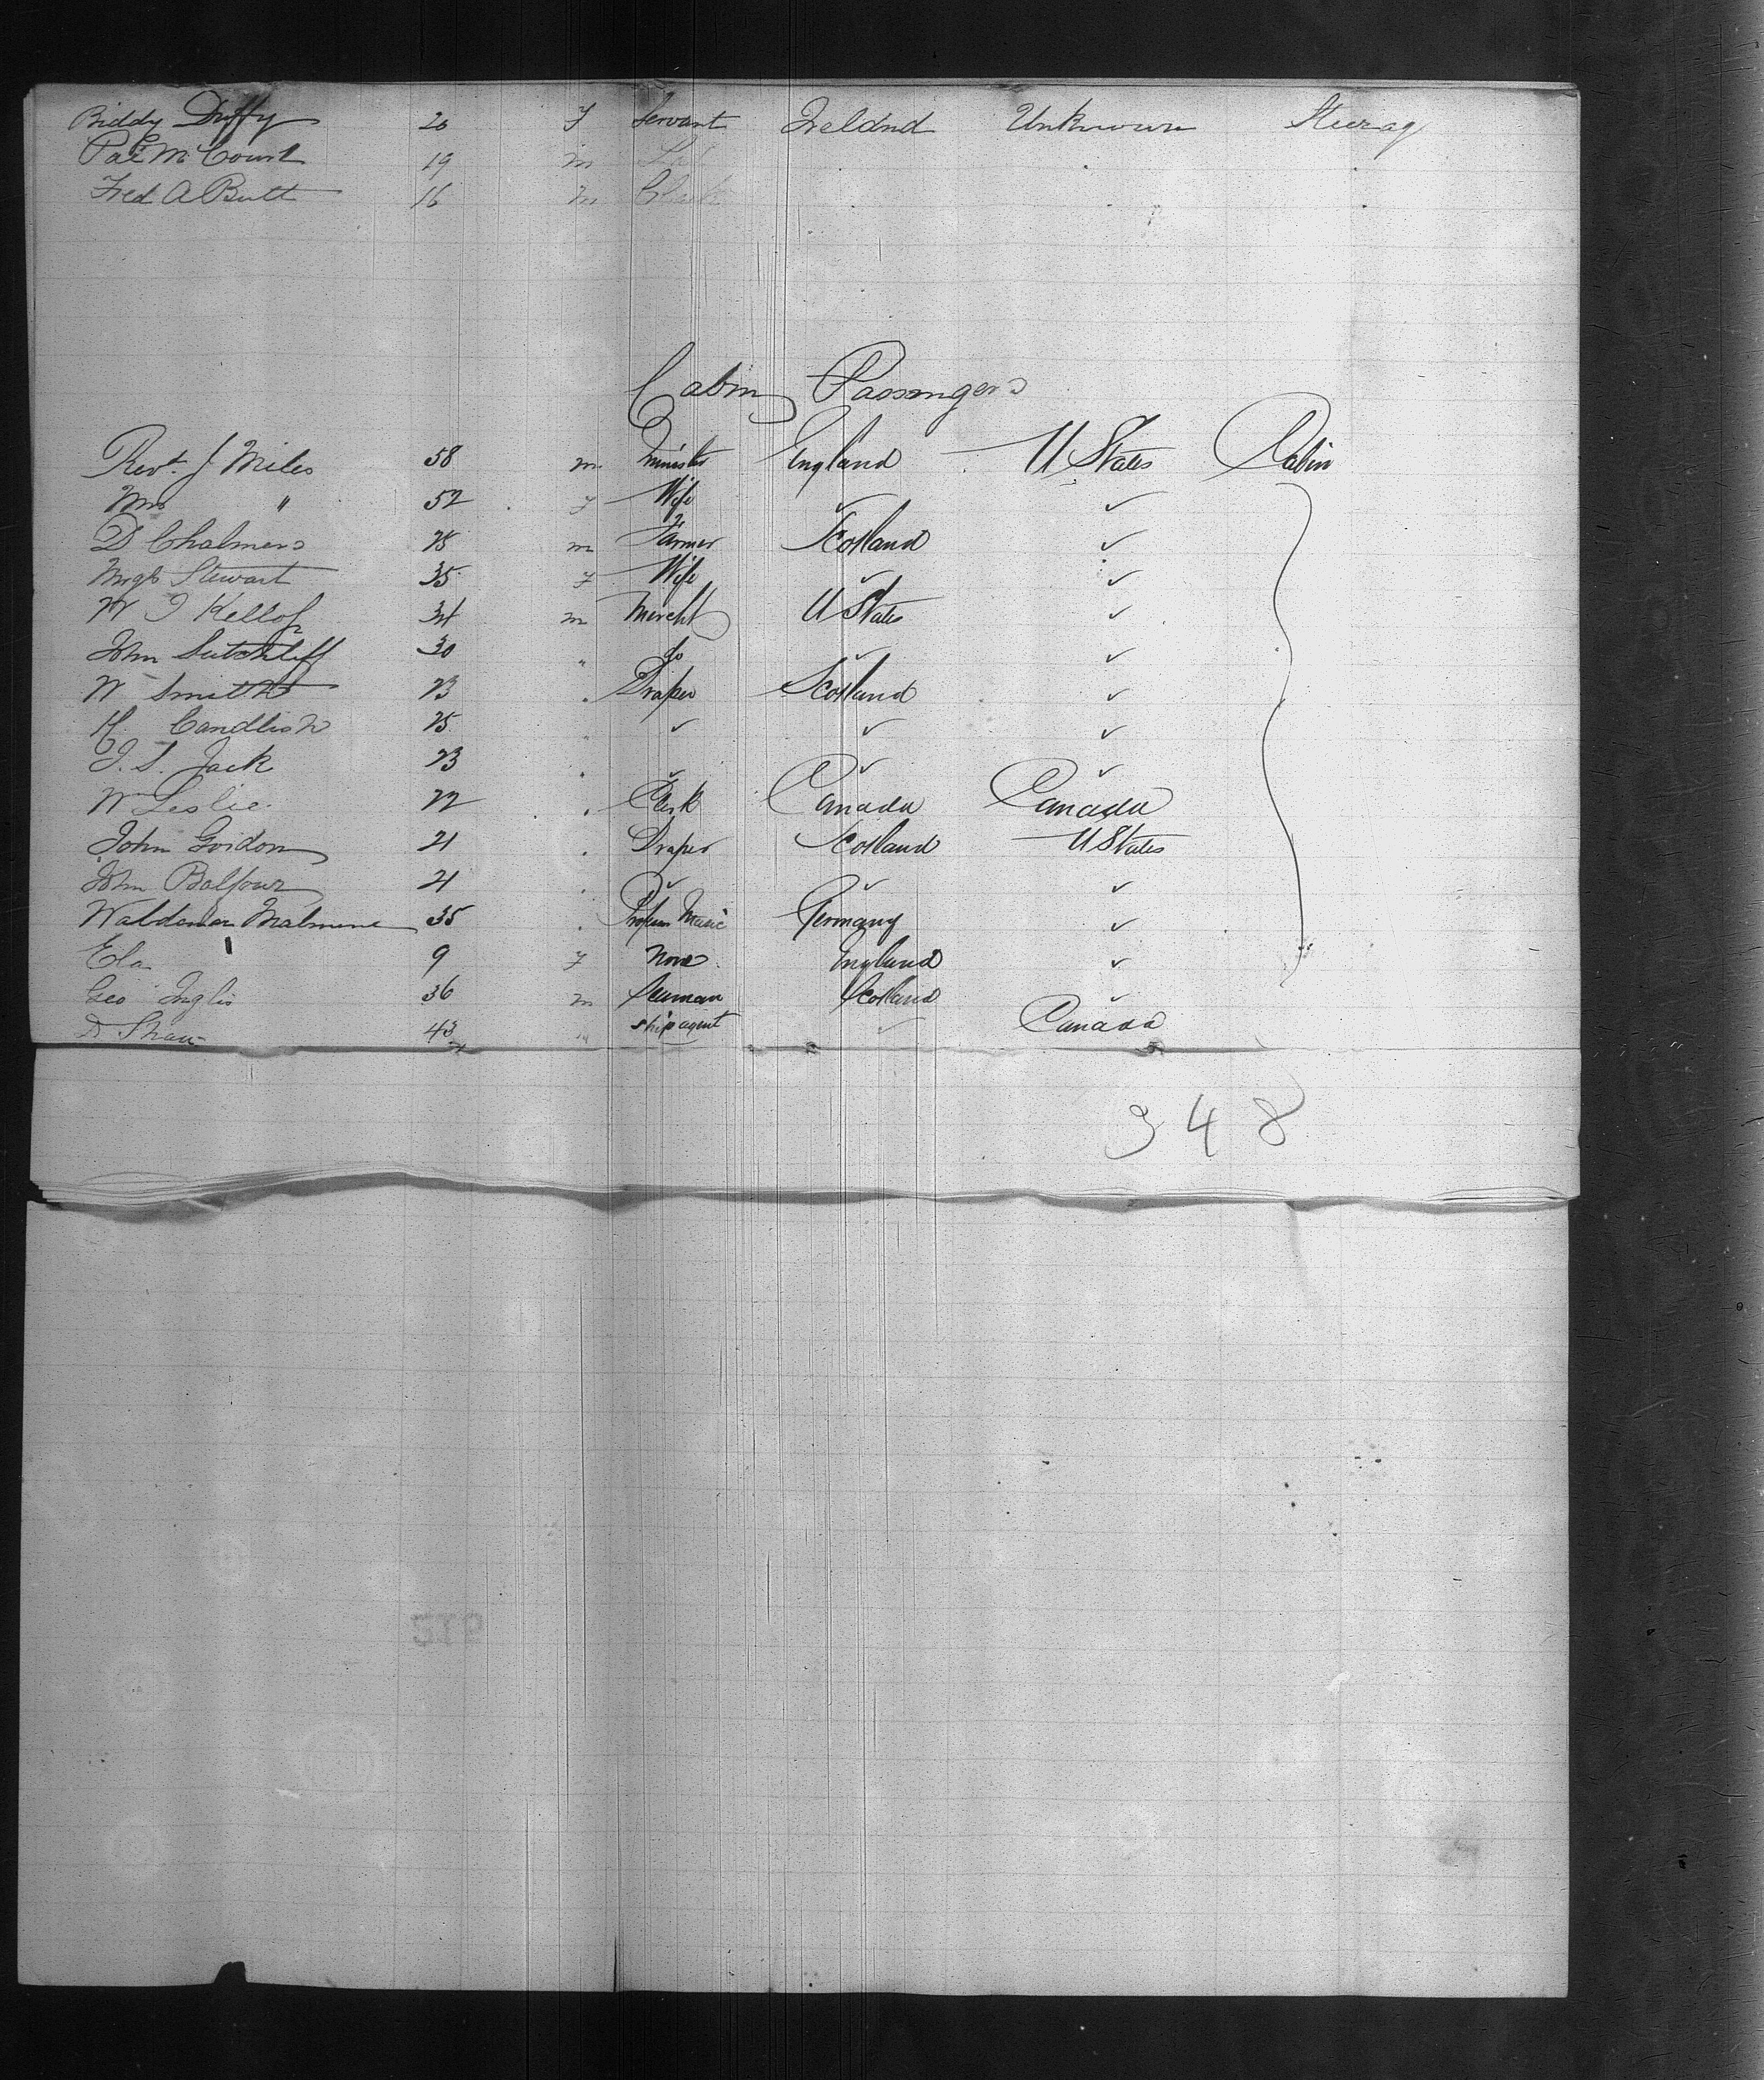 Biddy Duffy 20 F Servant Ireland Unknown Steerag
Pat McCourt 19 m Lab
Fred A Butt 16 m Clerk
Cabin Passengers
Revt. J Miles 58 m Minister England U States Cabin
Mrs " 52 F Wife ✓ ✓
D Chalmers 25 m Farmer Scotland ✓
Stewart 35 F Wife ✓ ✓
W J Kellogg 34 m Mercht U States ✓
John Sutchliff 30 " do ✓ ✓
W Smith 23 " Draper Scotland ✓
H. Candlish 25 " ✓ ✓ ✓
J. S. Jack 23 " ✓ ✓ ✓
Wm Leslie 22 " Clerk Canada Canada
John Gordon 21 " Draper Scotland U States
John Balfour 21 " ✓ ✓ ✓
Waldemar Malmene 35 " Profess Music Germany ✓
Ela " 9 F None England ✓
Geo Inglis 36 m Seaman Scotland ✓
D Shaw 43 " ship agent ✓ Canada
348